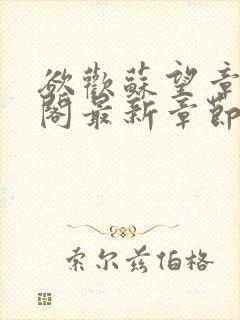 欲歡蘇望章
閣最新章節
索尔兹伯格